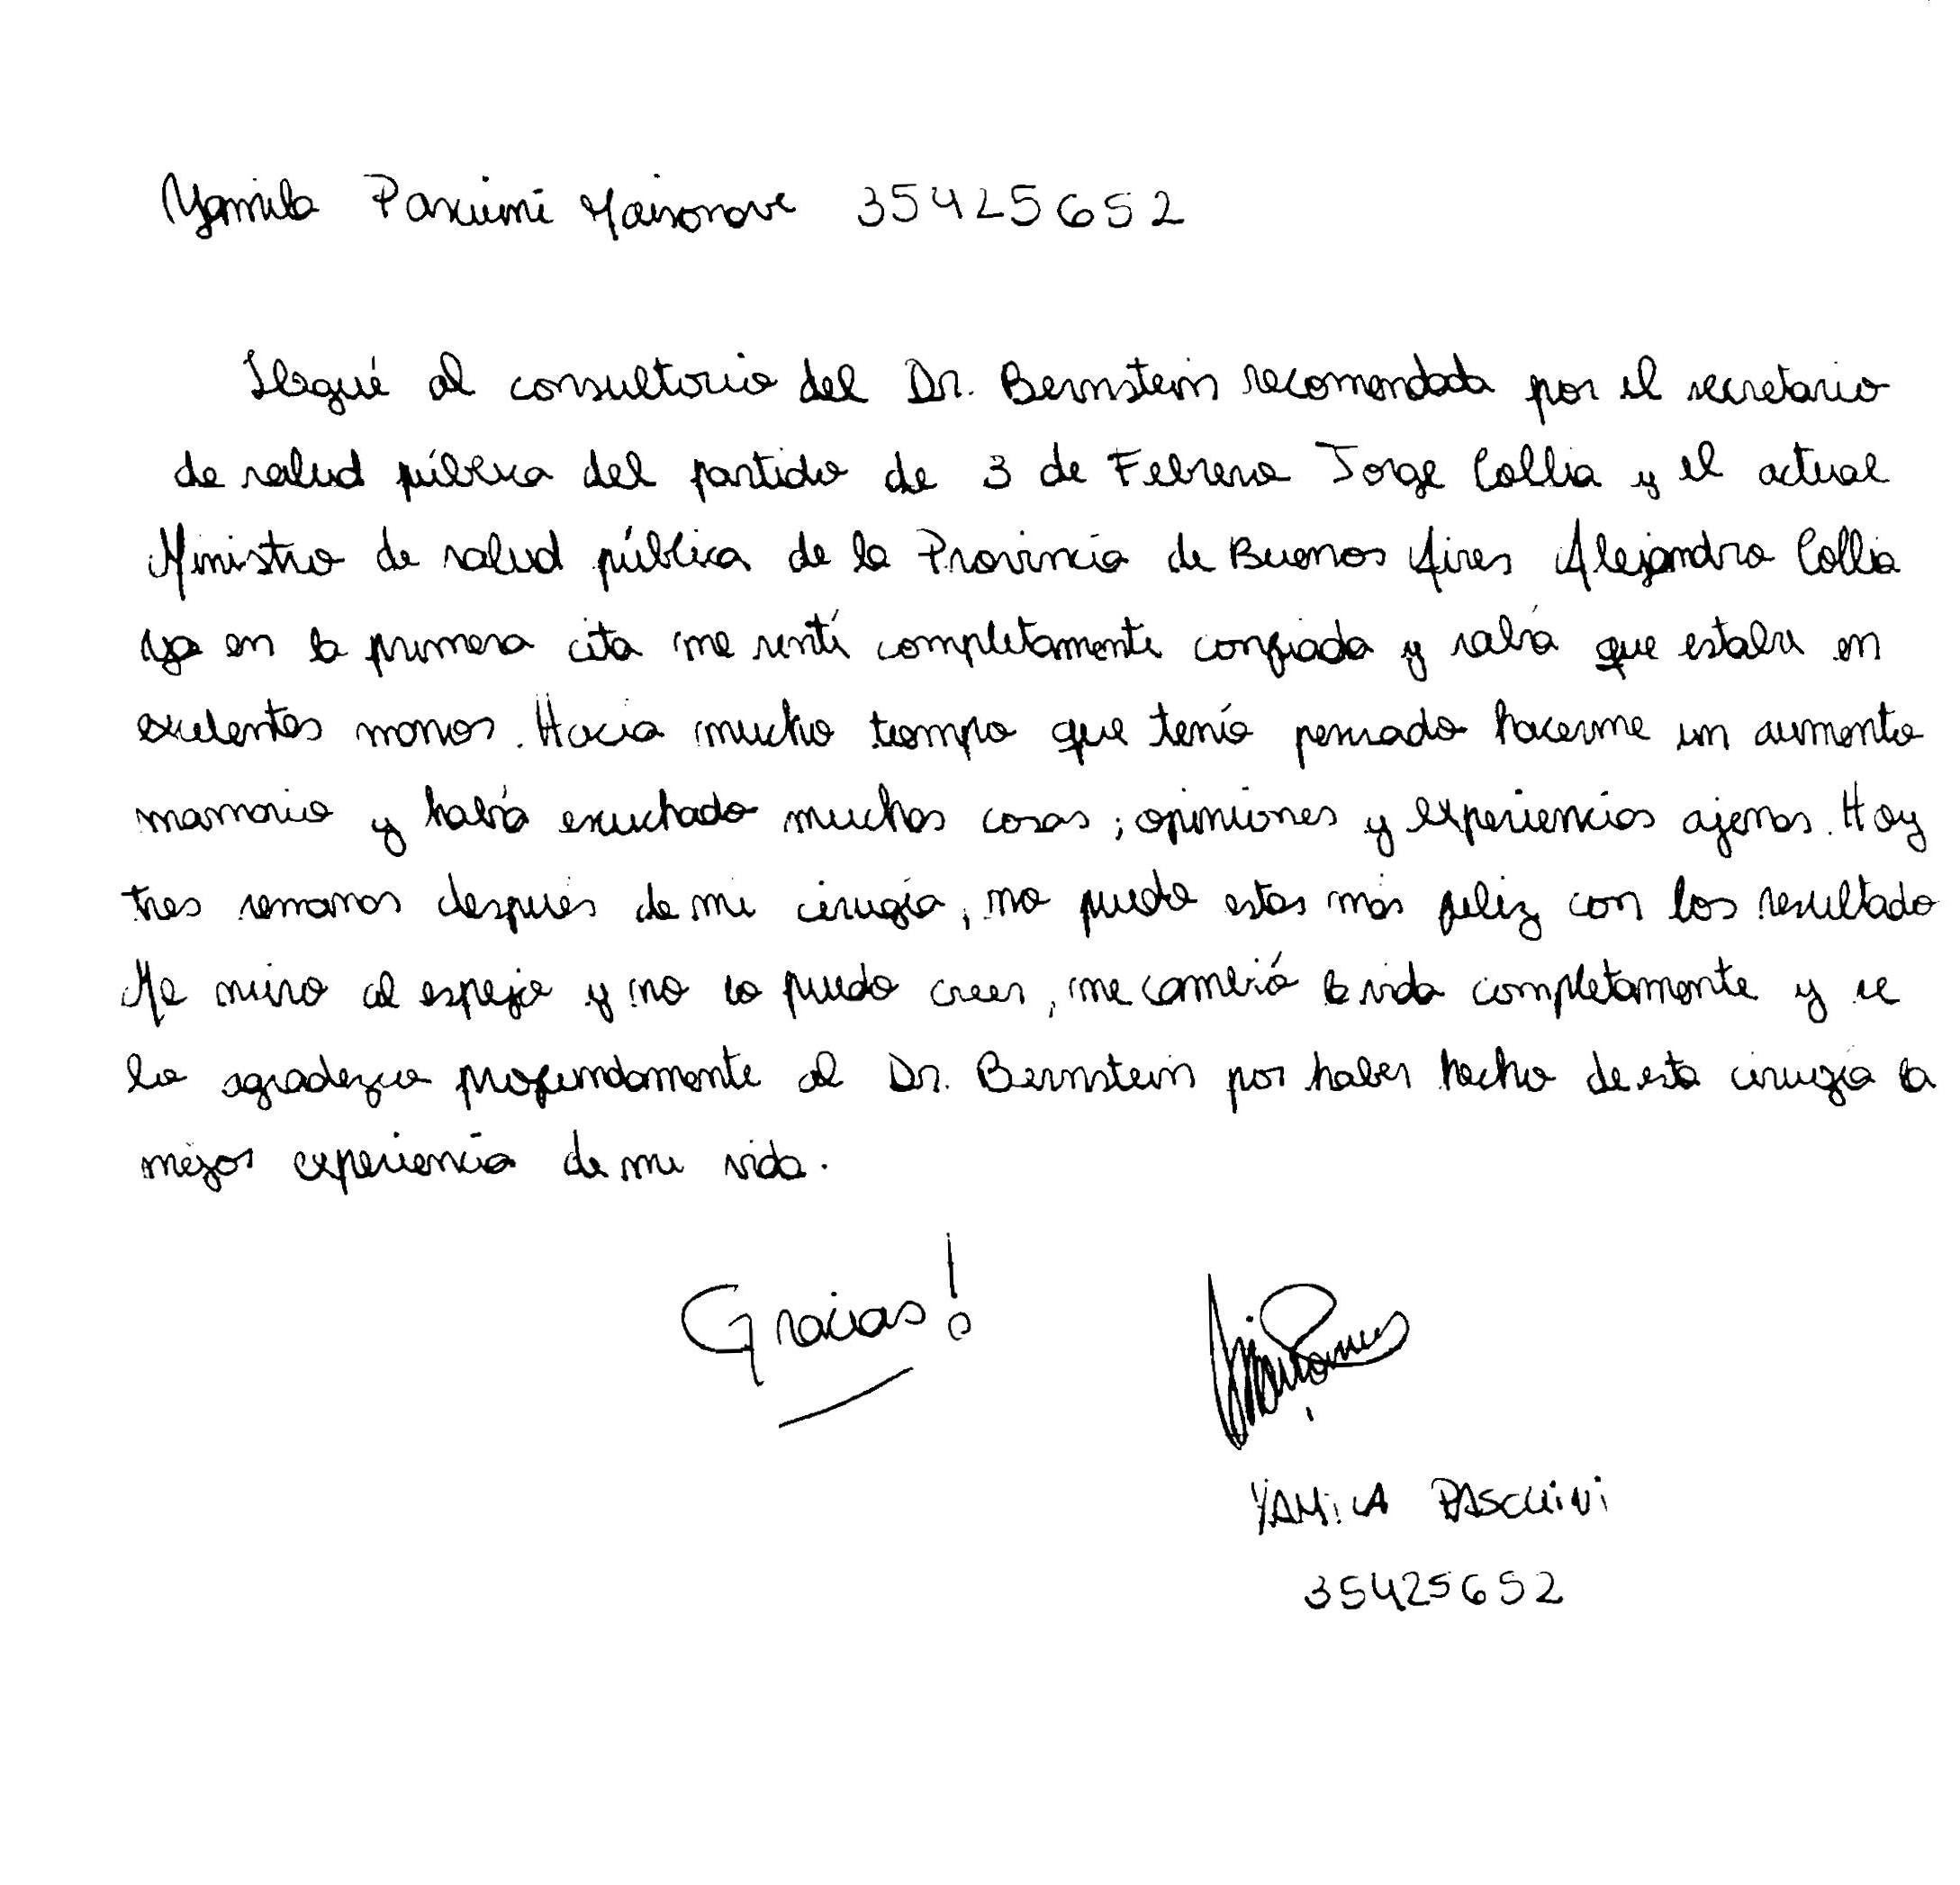 Yamila Paschini Maisonave 35425652
Llegué al consultorio del Dr. Bernstein recomendada por el secretario
de salud pública del partido de 3 de Febrero Jorge Collia y el actual
Ministro de salud pública de la Provincia de Buenos Aires Alejandro Collia
ya en la primera cita me sentí completamente confiada y sabía que estaba en
excelentes manos. Hacía mucho tiempo que tenía pensado hacerme un aumento
mamario y había escuchado muchas cosas; opiniones y experiencias ajenas. Hoy
tres semanas después de mi cirugía, no puedo estar más feliz con los resultado
Me miro al espejo y no lo puedo creer, me cambió la vida completamente y se
lo agradezco profundamente al Dr. Bernstein por haber hecho de esta cirugía la
mejor experiencia de mi vida.
Gracias!
YAMILA PASCHINI
35425652